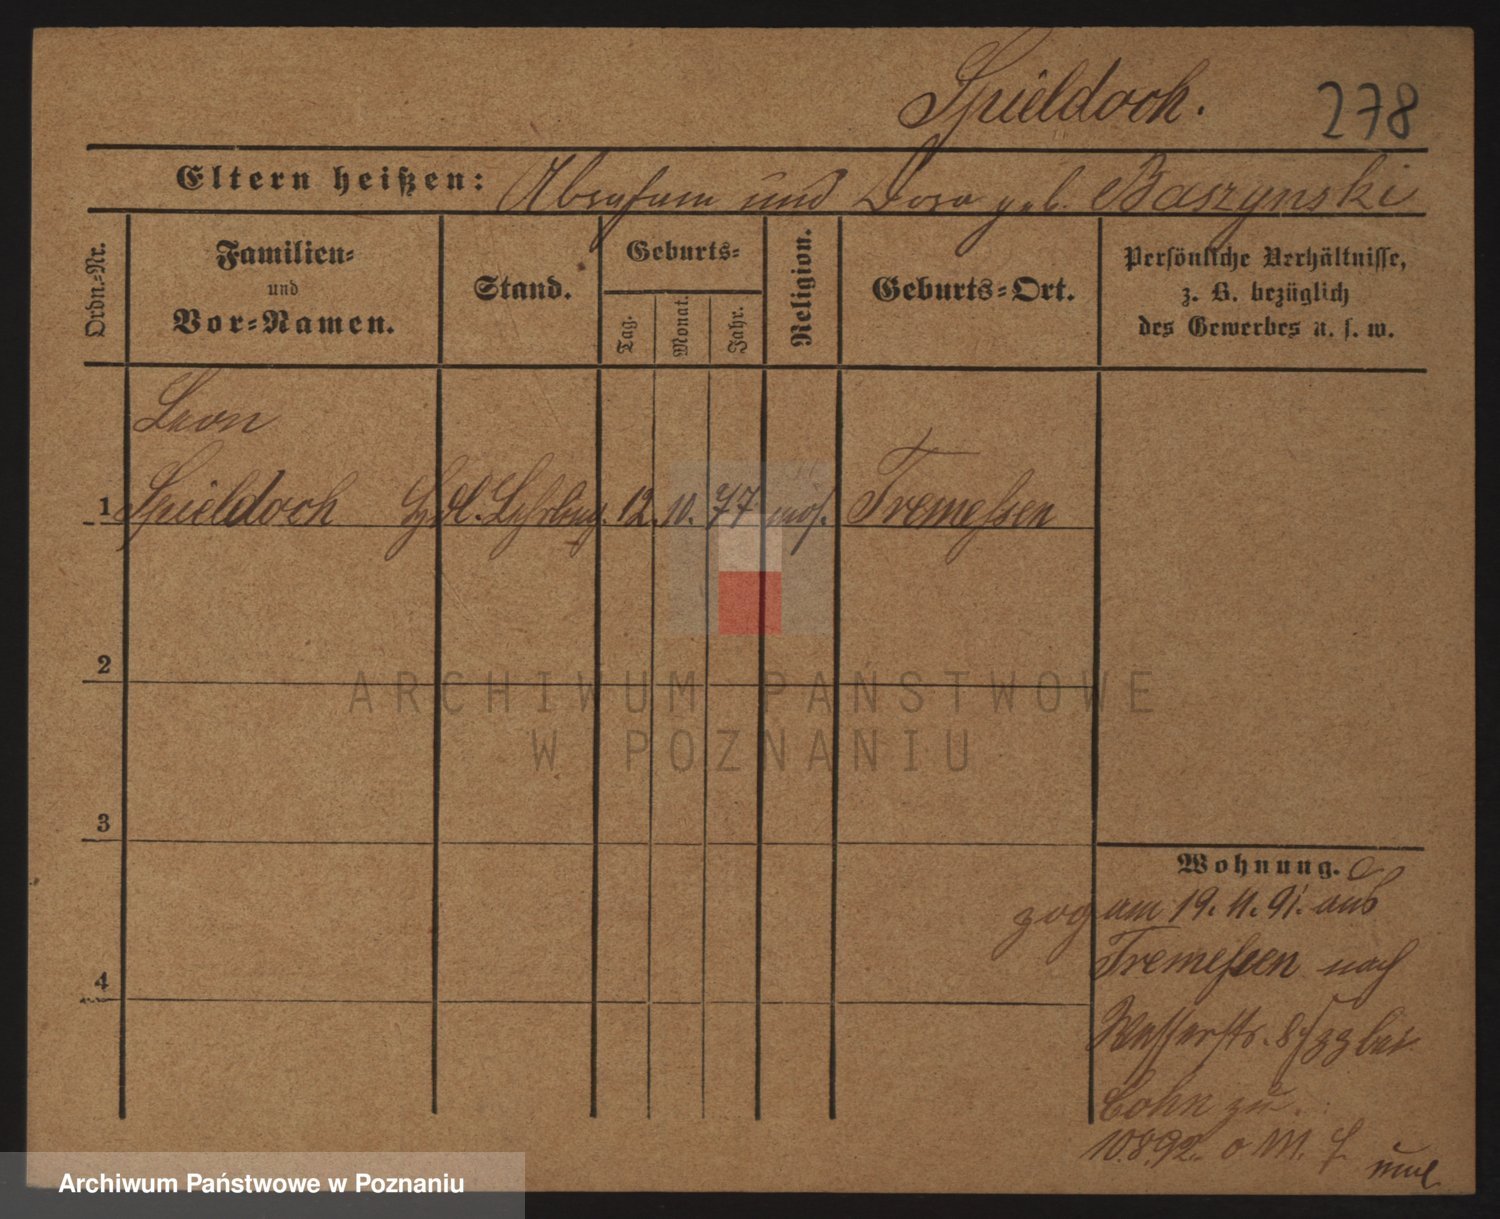 Spieldoch.
278
Eltern heißen: Abraham und Dora geb. Baszynski
Ordn.-Nr.
Familien-
und
Vor-Namen.
Stand.
Geburts-
Tag.
Monat.
Jahr.
Religion.
Geburts-Ort.
Persönliche Verhältnisse,
z. B. bezüglich
des Gewerbes u. s. w.
Leon
1 Spieldoch Hdl. Lehrling. 12. 10. 77 mos. Tremessen
2
3
4
Wohnung.
zog am 19. 11. 91. aus
Tremessen nach
Wasserstr. 8/ bei
Cohn zu.
10.8.92. o M.
ARCHIWUM PAŃSTWOWE
W POZNANIU
Archiwum Państwowe w Poznaniu